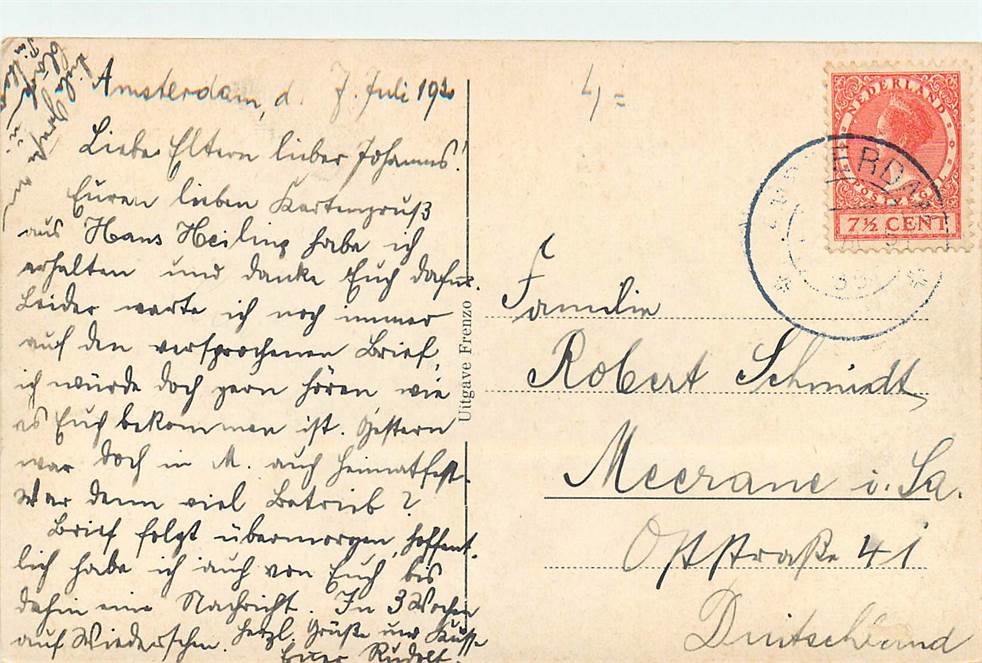 Amsterdam, d. 7. Juli 193
Liebe Eltern lieber Johannes!
Euren lieben Kartengruß
aus Hans Heiling habe ich
erhalten und danke Euch dafür.
Leider warte ich noch immer
auf den versprochenen Brief,
ich würde doch gern hören wie
es Euch bekommen ist. Gestern
war doch in M. auch Heimatfest.
War denn viel Betrieb?
Brief folgt übermorgen, hoffent-
lich habe ich auch von Euch bis
dahin eine Nachricht. In 3 Wochen
auf Wiedersehen. Herzl. Grüße und Küsse
Euer Rudolf.
Viele Grüße
Uitgave Frenzo
4,=
NEDERLAND
POSTZEGEL
7½ CENT
AMSTERDAM
Familie
Robert Schmidt
Meerane i. Sa.
Oststraße 41
Deutschland